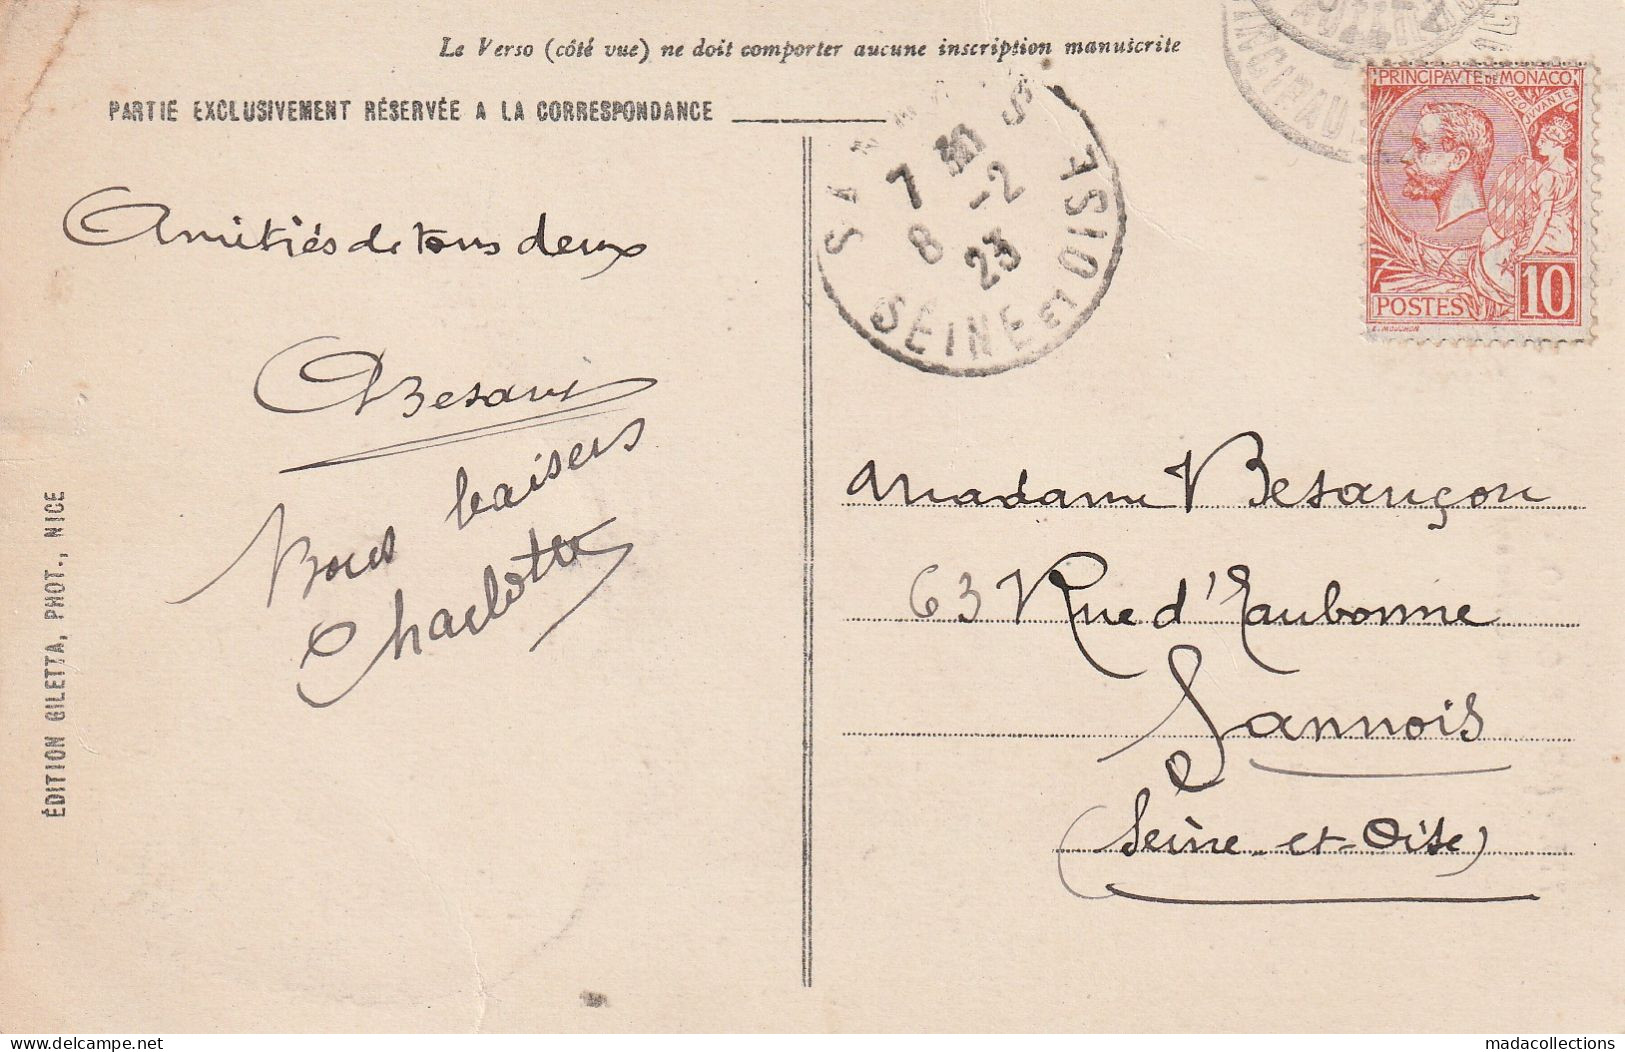 Le Verso (côté vue) ne doit comporter aucune inscription manuscrite
PARTIE EXCLUSIVEMENT RÉSERVÉE A LA CORRESPONDANCE
Amitiés de tous deux
Bons baisers
Charlotte
ÉDITION GILETTA, PHOT., NICE
7 30
8 -2
23
SEINE ET OISE
PRINCIPAVTE DE MONACO
DEO JVVANTE
POSTES 10
E. MOUCHON
Madame Besançon
63 Rue d'Eaubonne
Sannois
(Seine-et-Oise)
madacollections